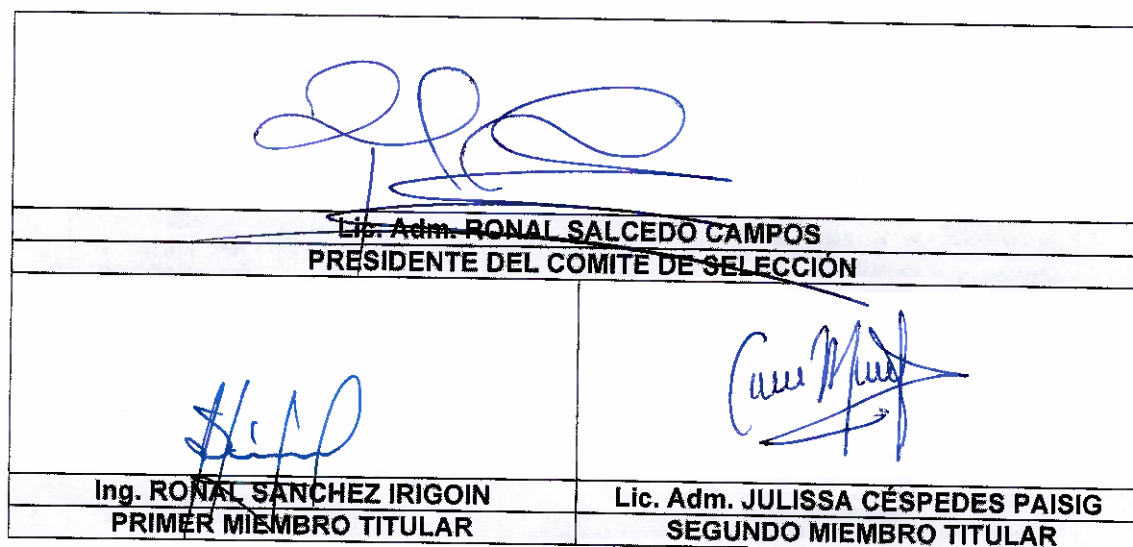 Lic. Adm. RONAL SALCEDO CAMPOS
PRESIDENTE DEL COMITE DE SELECCIÓN
Ing. RONAL SANCHEZ IRIGOIN
PRIMER MIEMBRO TITULAR
Lic. Adm. JULISSA CÉSPEDES PAISIG
SEGUNDO MIEMBRO TITULAR